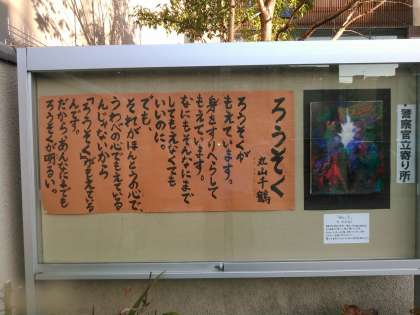 ろうそく
丸山千鶴
ろうそくが
もえています。
身をすりへらして
もえています。
なにもそんなにまで
してもえなくても
いいのに。
でも、
それがほんとうの心で、
うわべの心でもえている
んじゃないから
「ろうそく」がもえている
んです。
だから、あんなにまでも
ろうそくが明るい。
警察官立寄り所